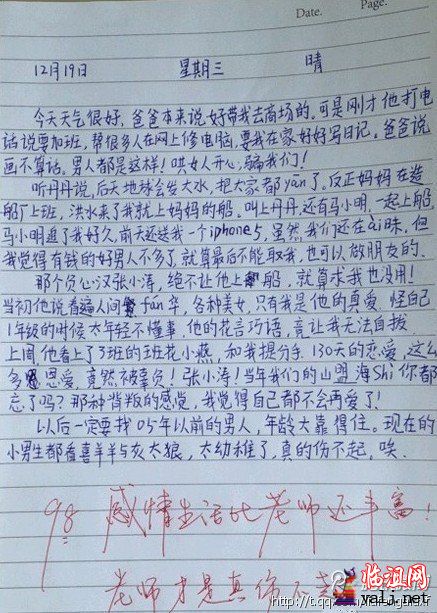 Date.
Page.
12月19日 星期三 晴
今天天气很好，爸爸本来说好带我去商场的。可是刚才他打电
话说要加班，帮很多人在网上修电脑，要我在家好好写日记。爸爸说
画不算话。男人都是这样！哄女人开心，骗我们！
听丹丹说，后天地球会发大水，把大家都yān了。反正妈妈在造
船厂上班，洪水来了我就上妈妈的船。叫上丹丹，还有马小明，一起上船，
马小明追了我好久，前天还送我一个iphone5，虽然我们还在ài昧，但
我觉得有钱的好男人不多了，就算最后不能取我，也可以做朋友的。
那个负心汉张小涛，绝不让他上船，就算求我也没用！
当初他说看遍人间fán华，各种美女，只有我是他的真爱，怪自己
1年级的时候太年轻不懂事，他的花言巧语，竟让我无法自拔
上周他看上了3班的班花小燕，和我提分手，130天的恋爱，这么
多恩爱，竟然被辜负！张小涛！当年我们的山盟海Shi你都
忘了吗？那种背叛的感觉，我觉得自己都不会再爱了！
以后一定要找05年以前的男人，年龄大靠得住。现在的
小男生都看喜羊羊与灰太狼，太幼稚了，真的伤不起，唉。
98 感情生活比老师还丰富！
老师才是真伤不起
临沮网
yali.net